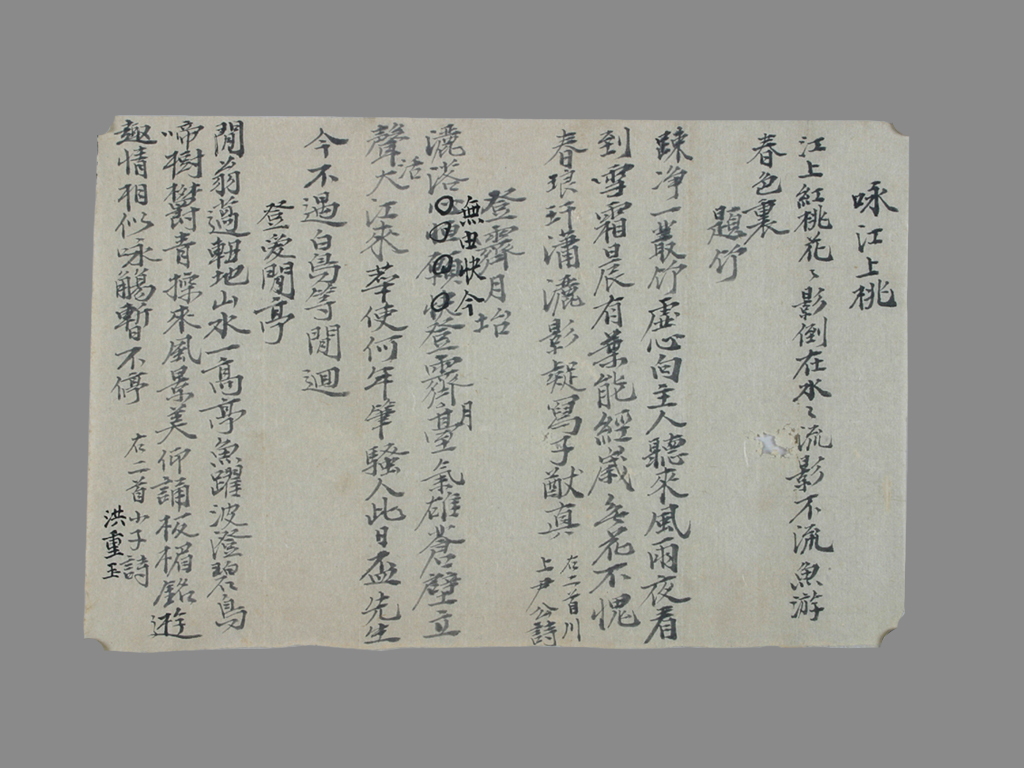 咏江上桃
江上紅桃花〻影倒在水〻流影不流魚游
春色裏
題竹
踈净一叢竹虛心向主人聽來風雨夜看
到雪霜晨有葉能經歲無花不愧
春琅玕瀟灑影疑寫子猷眞 右二首川
上尹公詩
登霽月坮
灑落 無由快今 登霽月臺氣雄蒼壁立
聲活大江來 筆使何年肇騷人此日盃先生
今不遇白鳥等閒廻
登愛閒亭
閒翁薖軸地山水一高亭魚躍波澄碧鳥
啼樹欝青探來風景美仰誦板楣銘遊
趣情相似咏觴暫不停 右二首小子詩
洪重玉